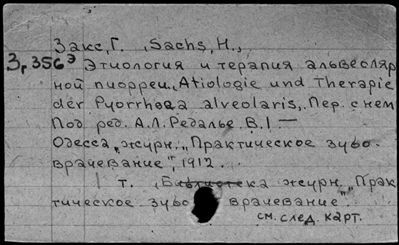 Закс, Г. , Sachs, H.,
3, 356 э Этиология и терапия альвеоляр
ной пиорреи. Atiologie und Therapie
der Pyorrhoaa alveolaris, Пер. с нем
Под ред. А.Л. Редалье. В. I —
Одесса, журн. „Практическое зубо-
врачевание", 1912.
I т. , Библиотека журн. „Прак
тическое зубо врачевание.
см. след. карт.